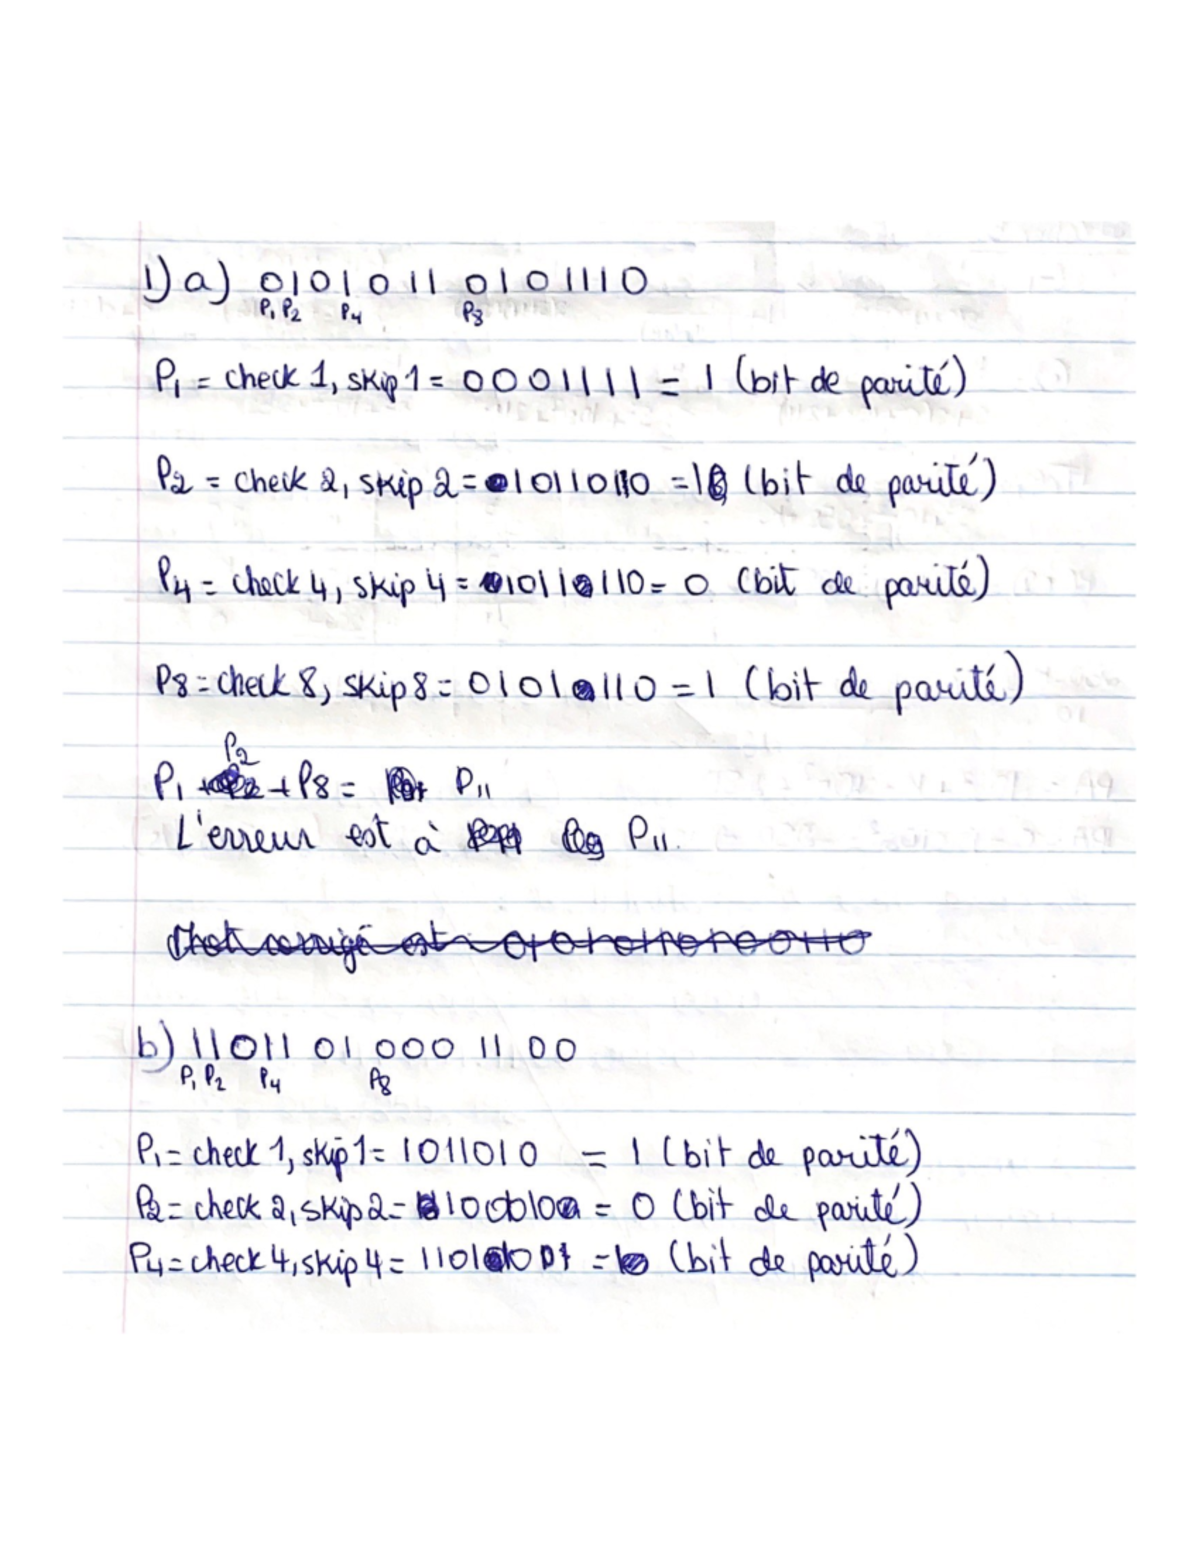 1) a) 0101011 0101110
P1 P2 P4 P8
P1 = check 1, skip 1 = 0001111 = 1 (bit de parité)
P2 = check 2, skip 2 = 10110110 = 1 (bit de parité)
P4 = check 4, skip 4 = 1011 110 = 0 (bit de parité)
P8 = check 8, skip 8 = 0101 110 = 1 (bit de parité)
P2
P1 + P8 = P11
L'erreur est à P11.
b) 11011 01 000 11 00
P1 P2 P4 P8
P1 = check 1, skip 1 = 1011010 = 1 (bit de parité)
P2 = check 2, skip 2 = = 0 (bit de parité)
P4 = check 4, skip 4 = = 1 (bit de parité)